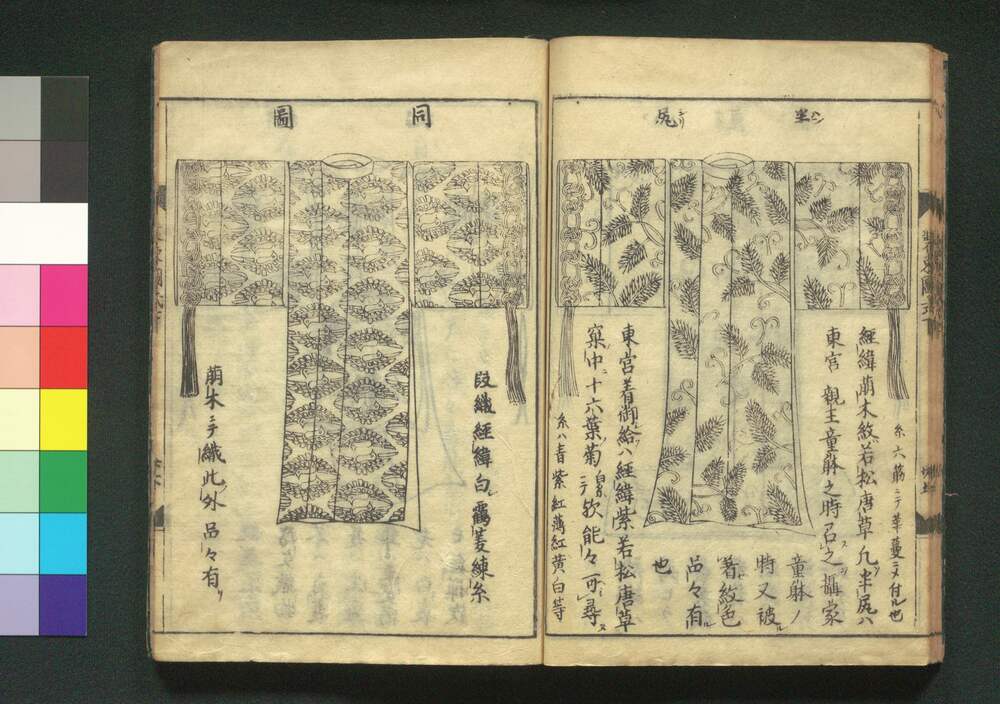 半尻
糸六筋ニテ華蔓ニメ付ル也
経緯萠木紋若松唐草凡半尻ハ
東宮親王童躰之時召之攝家
童躰ノ
時又被
着紋色
品々有
也
東宮着御給ハ経緯紫若松唐草
窠中十六葉菊
ニテ欤能々可尋
糸ハ青紫紅薄紅黄白等
同圖
段織経緯白ル鸞菱練糸
萠木ニテ織此外品々有リ